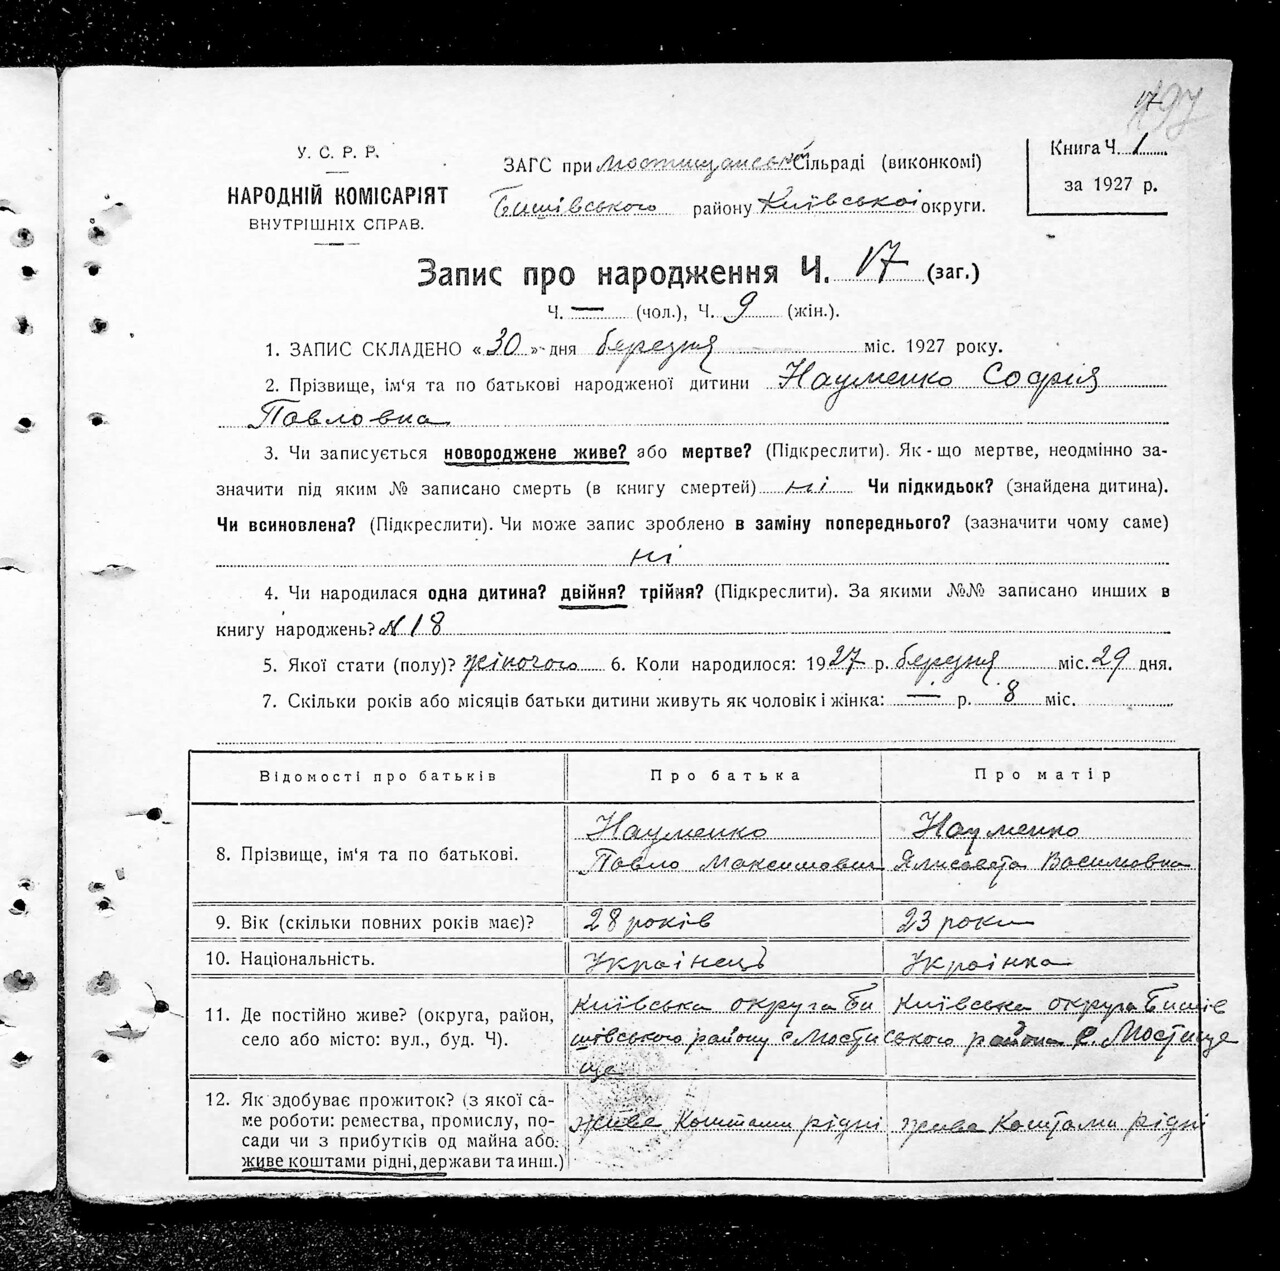 197
17
У. С. Р. Р.
НАРОДНІЙ КОМІСАРІЯТ
ВНУТРІШНІХ СПРАВ.
ЗАГС при Мостищанській Сільраді (виконкомі)
Бишівського району Київської округи.
Книга Ч. 1
за 1927 р.
Запис про народження Ч. 17 (заг.)
Ч. — (чол.), Ч. 9 (жін.).
1. ЗАПИС СКЛАДЕНО «30» дня березня міс. 1927 року.
2. Прізвище, ім'я та по батькові народженої дитини Науменко Софія
Павловна
3. Чи записується новороджене живе? або мертве? (Підкреслити). Як-що мертве, неодмінно за-
значити під яким № записано смерть (в книгу смертей) ні Чи підкидьок? (знайдена дитина).
Чи всиновлена? (Підкреслити). Чи може запис зроблено в заміну попереднього? (зазначити чому саме)
ні
4. Чи народилася одна дитина? двійня? трійня? (Підкреслити). За якими №№ записано инших в
книгу народжень? № 18
5. Якої стати (полу)? жіночого 6. Коли народилося: 1927 р. березня міс. 29 дня.
7. Скільки років або місяців батьки дитини живуть як чоловік і жінка: — р. 8 міс.
Відомості про батьків Про батька Про матір
8. Прізвище, ім'я та по батькові. Науменко Павло Максимович Науменко Ялисавета Василивна
9. Вік (скільки повних років має)? 28 років 23 роки
10. Національність. Українець Українка
11. Де постійно живе? (округа, район, Київська округа Би Київська округа Бишів
село або місто: вул., буд. Ч). шівського району с Мости ського района с. Мостище
ще
12. Як здобуває прожиток? (з якої са-
ме роботи: ремества, промислу, по- живе Коштами рідні живе Коштами рідні
сади чи з прибутків од майна або:
живе коштами рідні, держави та инш.)